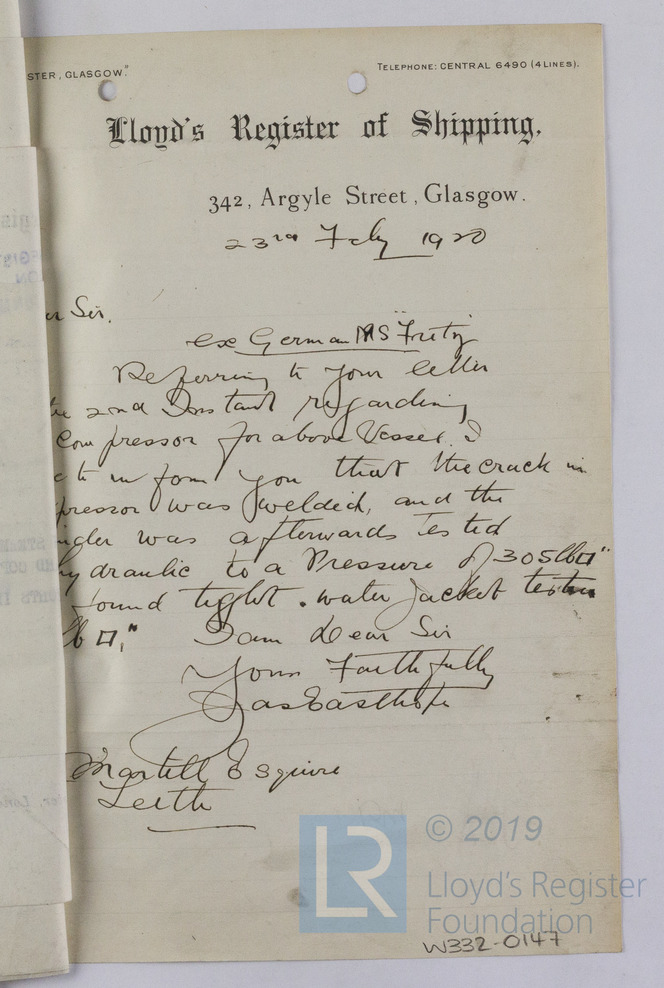 STER, GLASGOW."
TELEPHONE: CENTRAL 6490 (4 LINES).
Lloyd's Register of Shipping.
342, Argyle Street, Glasgow.
23rd Feby 1920
Sir.
ex German MS "Fritz"
Referring to your letter
2nd Instant regarding
Compressor for above Vessel. I
to inform you that the crack in
pressor was welded, and the
nder was afterwards tested
hydraulic to a Pressure of 305 lb □"
found tight. water Jacket
lb □"
I am Dear Sir
Yours Faithfully
Jas Easthope
Martell Esquire
Leith
LR
© 2019
Lloyd's Register
Foundation
W332-0147